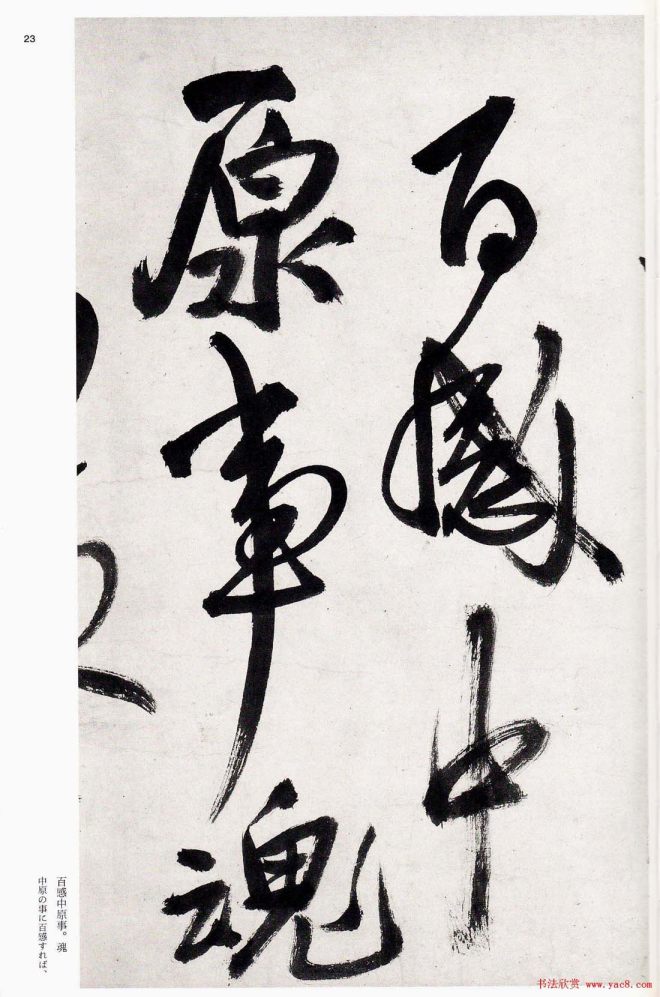 23
百感中
原事魂
百感中原事。魂
中原の事に百感すれば、
书法欣赏 www.yac8.com